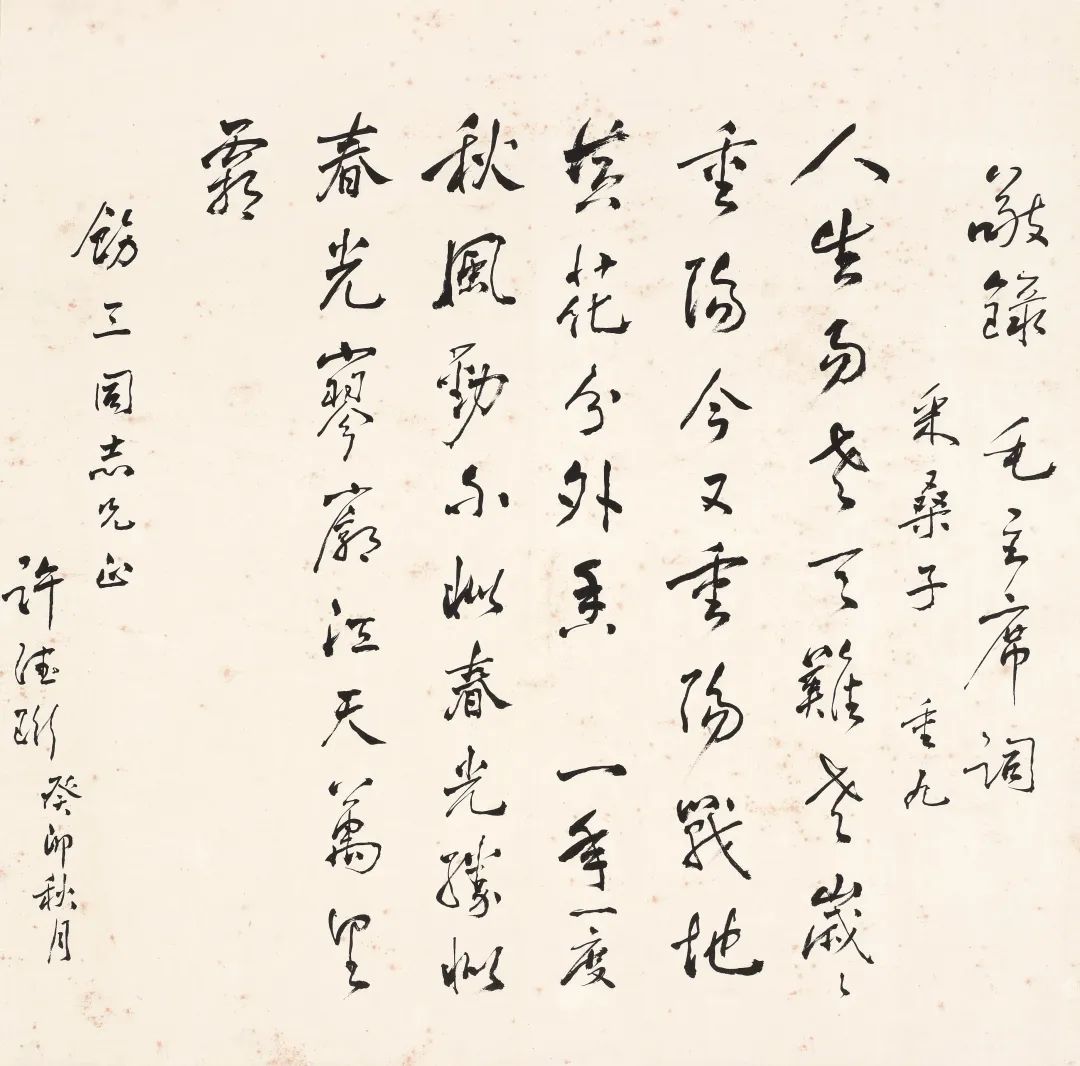 敬錄 毛主席词
采桑子 重九
人生易老天難老歲〻
重陽今又重陽戰地
黃花分外香 一年一度
秋風勁不似春光勝似
春光寥廓江天萬里
霜
飭三同志兄正
許德珩 癸卯秋月